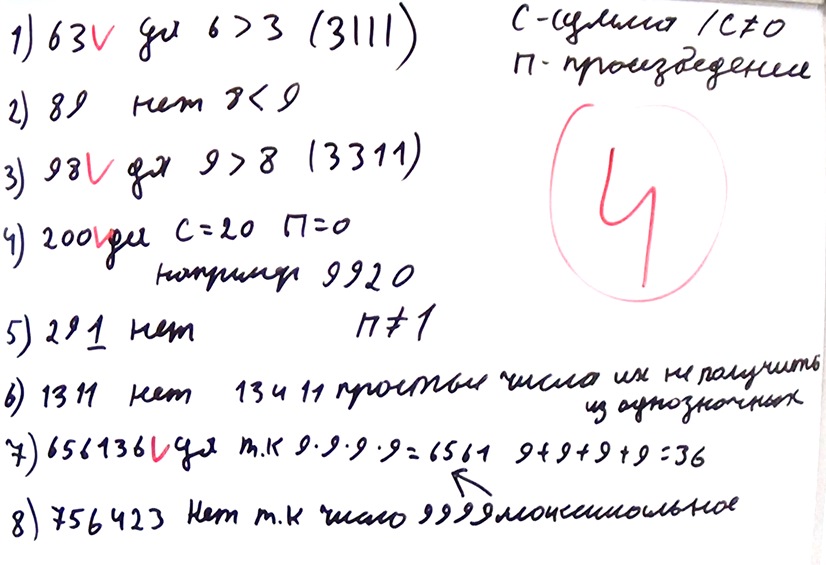 С-сумма /С≠0
П-произведение
1) 63V да 6>3 (3111)
2) 89 нет 8<9
3) 98V да 9>8 (3311)
4
4) 200V да С=20 П=0
например 9920
5) 291 нет П≠1
6) 1311 нет 13 и 11 простые числа их не получить
из однозначных
7) 656136V да т.к 9·9·9·9=6561 9+9+9+9=36
8) 756423 Нет т.к число 9999 максимальное